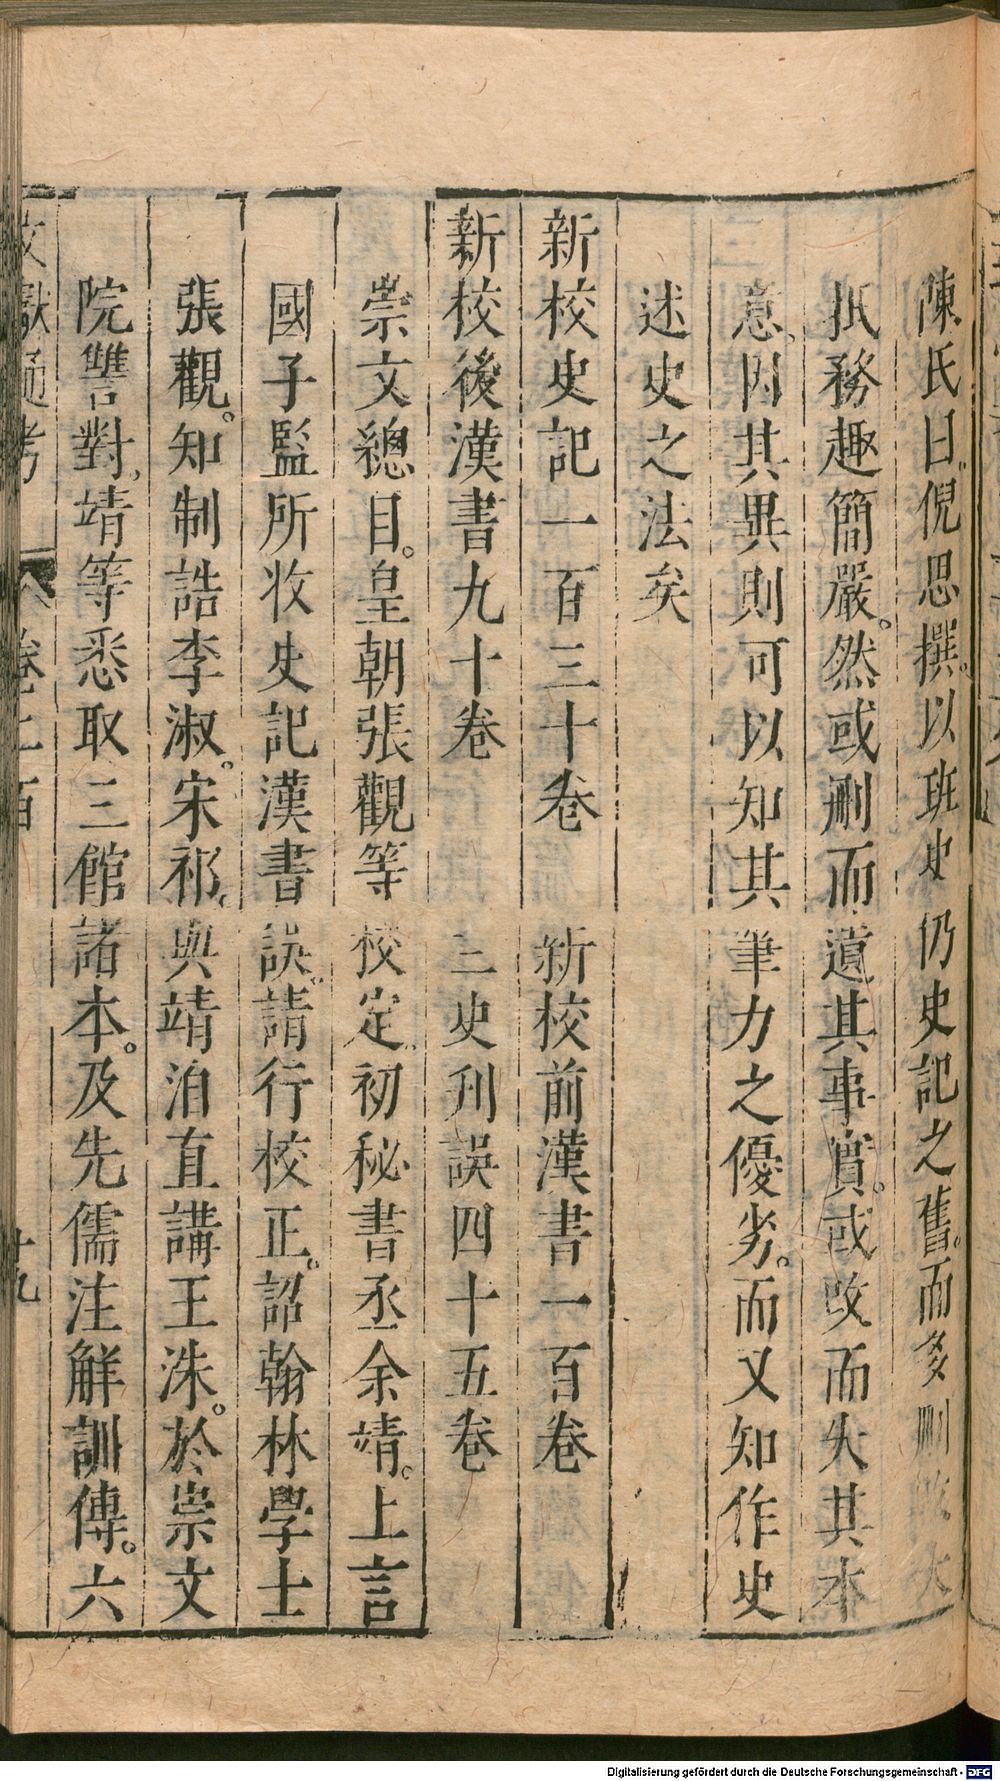 陳氏曰。倪思撰。以班史仍史記之舊。而多刪改大
抵務趣簡嚴。然或刪而遺其事實。或改而失其本
意。因其異則可以知其筆力之優劣。而又知作史
述史之法矣
新校史記一百三十卷 新校前漢書一百卷
新校後漢書九十卷 三史刊誤四十五卷
崇文總目。皇朝張觀等校定。初秘書丞余靖。上言
國子監所收史記漢書誤。請行校正。詔翰林學士
張觀。知制誥李淑。宋祁。與靖洎直講王洙。於崇文
院讐對。靖等悉取三館諸本。及先儒注解訓傳。六
文獻通考 卷二百 十九
Digitalisierung gefördert durch die Deutsche Forschungsgemeinschaft - DFG